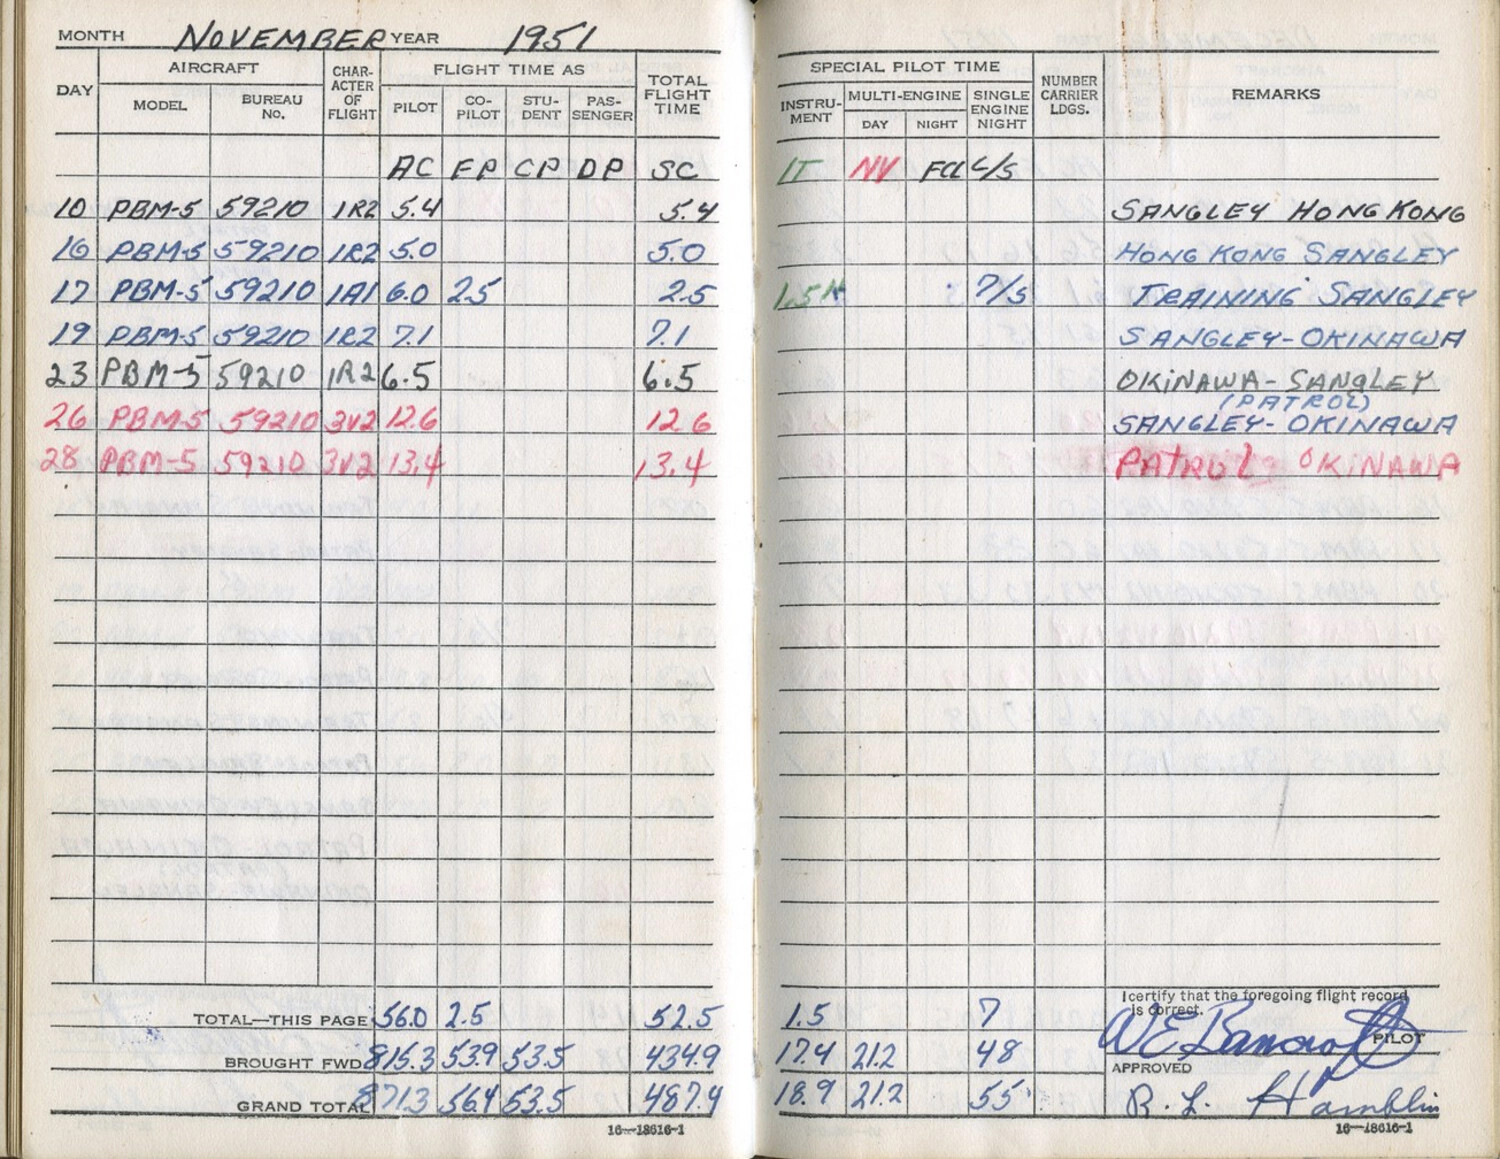 MONTH NOVEMBER YEAR 1951
DAY AIRCRAFT CHARACTER OF FLIGHT FLIGHT TIME AS TOTAL FLIGHT TIME
MODEL BUREAU No. PILOT CO-PILOT STUDENT PASSENGER
AC FP CP DP SC
10 PBM-5 59210 1R2 5.4 5.4
16 PBM-5 59210 1R2 5.0 5.0
17 PBM-5 59210 1A1 6.0 2.5 2.5
19 PBM-5 59210 1R2 7.1 7.1
23 PBM-5 59210 1R2 6.5 6.5
26 PBM-5 59210 3V2 12.6 12.6
28 PBM-5 59210 3V2 13.4 13.4
TOTAL—THIS PAGE 56.0 2.5 52.5
BROUGHT FWD. 815.3 53.9 53.5 434.9
GRAND TOTAL 871.3 56.4 53.5 487.4
16—18616-1
SPECIAL PILOT TIME NUMBER CARRIER LDGS. REMARKS
INSTRUMENT MULTI-ENGINE SINGLE ENGINE NIGHT
DAY NIGHT
IT NV FCL L/S
SANGLEY HONG KONG
HONG KONG SANGLEY
1.5 7/5 TRAINING SANGLEY
SANGLEY-OKINAWA
OKINAWA-SANGLEY
(PATROL)
SANGLEY-OKINAWA
PATROL OKINAWA
I certify that the foregoing flight record is correct.
1.5 7
W E Bancroft PILOT
17.4 21.2 48
APPROVED
18.9 21.2 55
R. L. Hamblin
16—18616-1